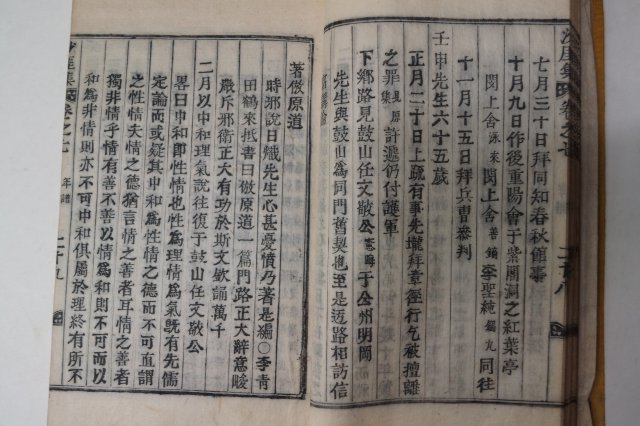 七月三十日拜同知春秋館事
十月九日作後重陽會于紫閣洞之紅葉亭
閔上舍泳來閔上舍善鎬李聖純錫九同往
十一月十五日拜兵曹參判
壬申先生六十五歲
正月二十日上疏有事先壠拜章徑行乞被擅離
之罪見原許遞仍付護軍
下鄉路見鼓山任文敬公憲晦于公州明岡
先生與鼓山爲同門舊契也至是迃路相訪信
著倣原道
時邪說日熾先生心甚憂憤乃著是編○李青
田鶴來抵書曰倣原道一篇門路正大辭意畯
嚴斥邪衛正大有功於斯文敬誦萬千
二月以中和理氣說往復于鼓山任文敬公
畧曰中和卽性情也性爲理情爲氣旣有先儒
定論而或疑其中和爲性情之德而不可直謂
之性情夫情之德猶言情之善者耳情之善者
獨非情乎情有善與不善情與和則不可而以
和爲非情則亦不可中和俱屬於理終有所不
年譜
二十九